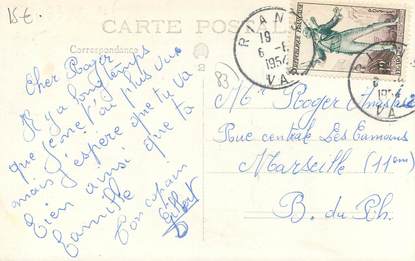 15 €
CARTE POSTALE
Correspondance
Cher Roger
Il y a longtemps
que je ne t'ai plus vu
mais j'espère que tu va
bien ainsi que ta
famille
Ton copain
Gilbert
RIANS
19
6 -
1954
VAR
83
Mr Roger
Rue centrale Les Camoins
Marseille (11em)
B. du Rh.